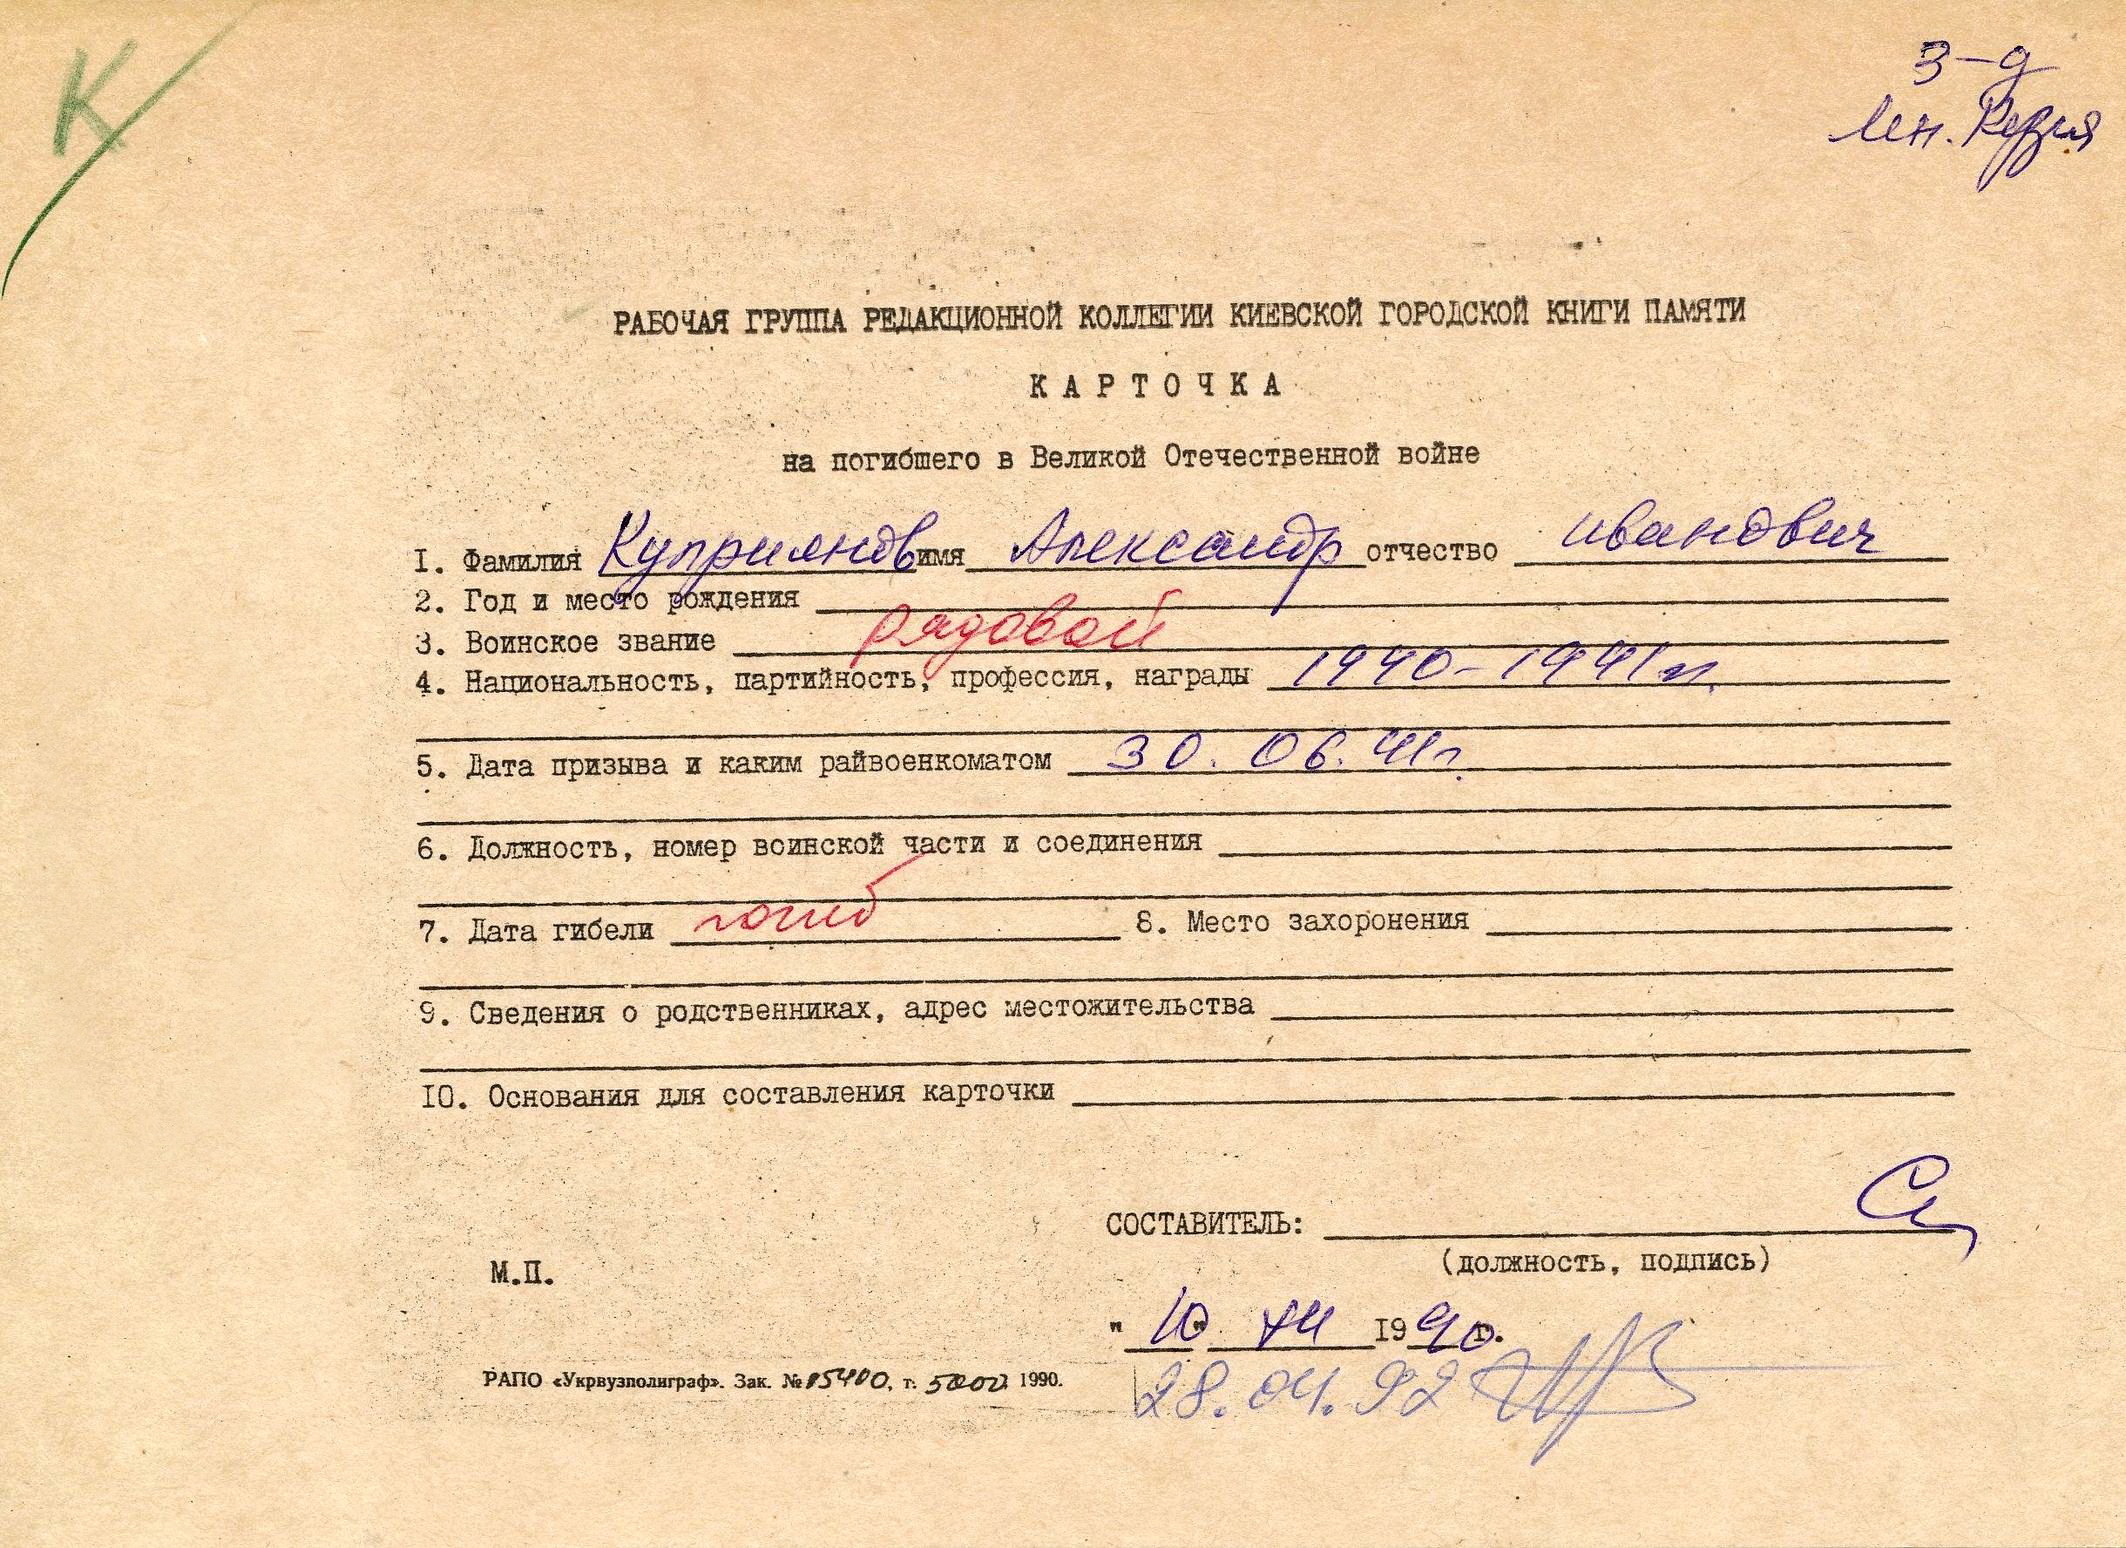 К
З-д
Лен. Кузня
РАБОЧАЯ ГРУППА РЕДАКЦИОННОЙ КОЛЛЕГИИ КИЕВСКОЙ ГОРОДСКОЙ КНИГИ ПАМЯТИ
КАРТОЧКА
на погибшего в Великой Отечественной войне
1. Фамилия Куприянов имя Александр отчество Иванович
2. Год и место рождения
3. Воинское звание рядовой
4. Национальность, партийность, профессия, награды 1940-1941 гг.
5. Дата призыва и каким райвоенкоматом 30.06.41г.
6. Должность, номер воинской части и соединения
7. Дата гибели погиб 8. Место захоронения
9. Сведения о родственниках, адрес местожительства
10. Основания для составления карточки
СОСТАВИТЕЛЬ:
(должность, подпись)
М.П.
"10" XII 1990 г.
РАПО «Укрвузполиграф». Зак. № 05400, т. 5000 1990.
28.04.92